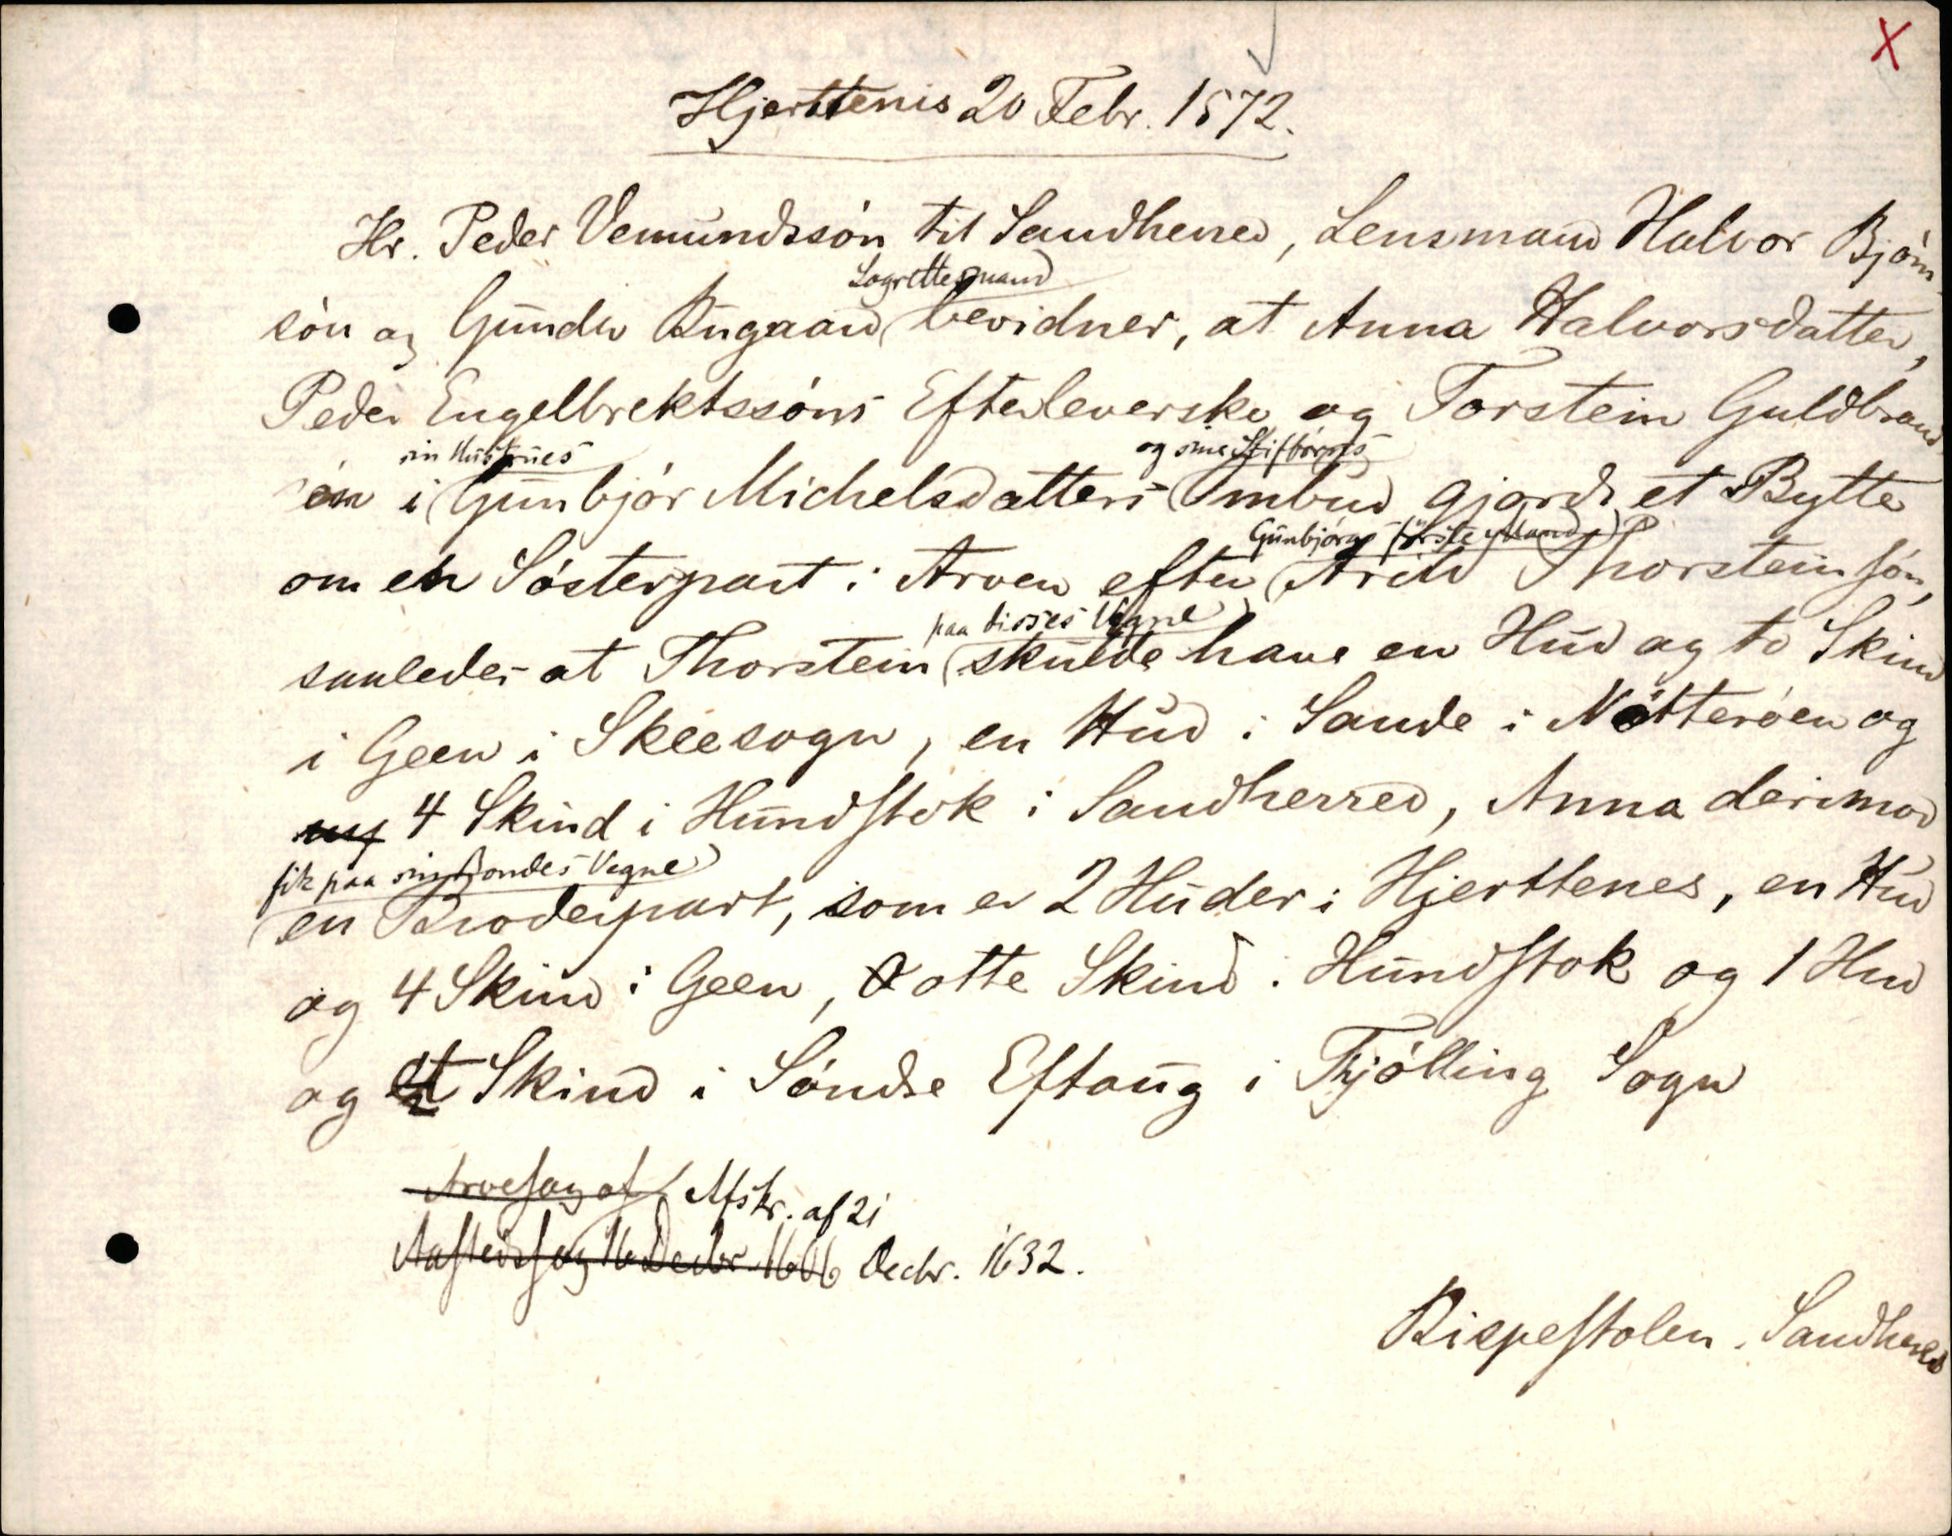 X
Hjerttenis 20 Febr. 1572.
Hr. Peder Vemundssön til Sandherred, Lensmand Halvor Björn
Lagrettesmand
sön og Gunder Rugaard bevidner, at Anna Halvorsdatter,
Peder Engelbrektssöns Efterleverske og Torstein Guldbrand
sin Hustrues
og sine Stifbørns
sön i Gunbjör Michelsdatters Ombud gjorde et Bytte
Gunbjörgs förste Mand
om en Sösterpart i Arven efter Arild Thorsteinsön,
paa disses Vegne
saaledes at Thorstein skulde have en Hud og to Skind
i Geen i Skeesogn, en Hud i Sande i Nötteröen og
4 Skind i Hundstok i Sandherred, Anna derimod
fik paa sin Bondes Vegne
en Broderpart, som er 2 Huder i Hjerttenes, en Hud
og 4 Skind i Geen, otte Skind i Hundstok og 1 Hud
og et Skind i Söndre Eftang i Tjölling Sogn
Arvesag af Afskr. af 21
Aastedssag 16 Decbr. 1606 Decbr. 1632.
Bispestolen. Sandherred